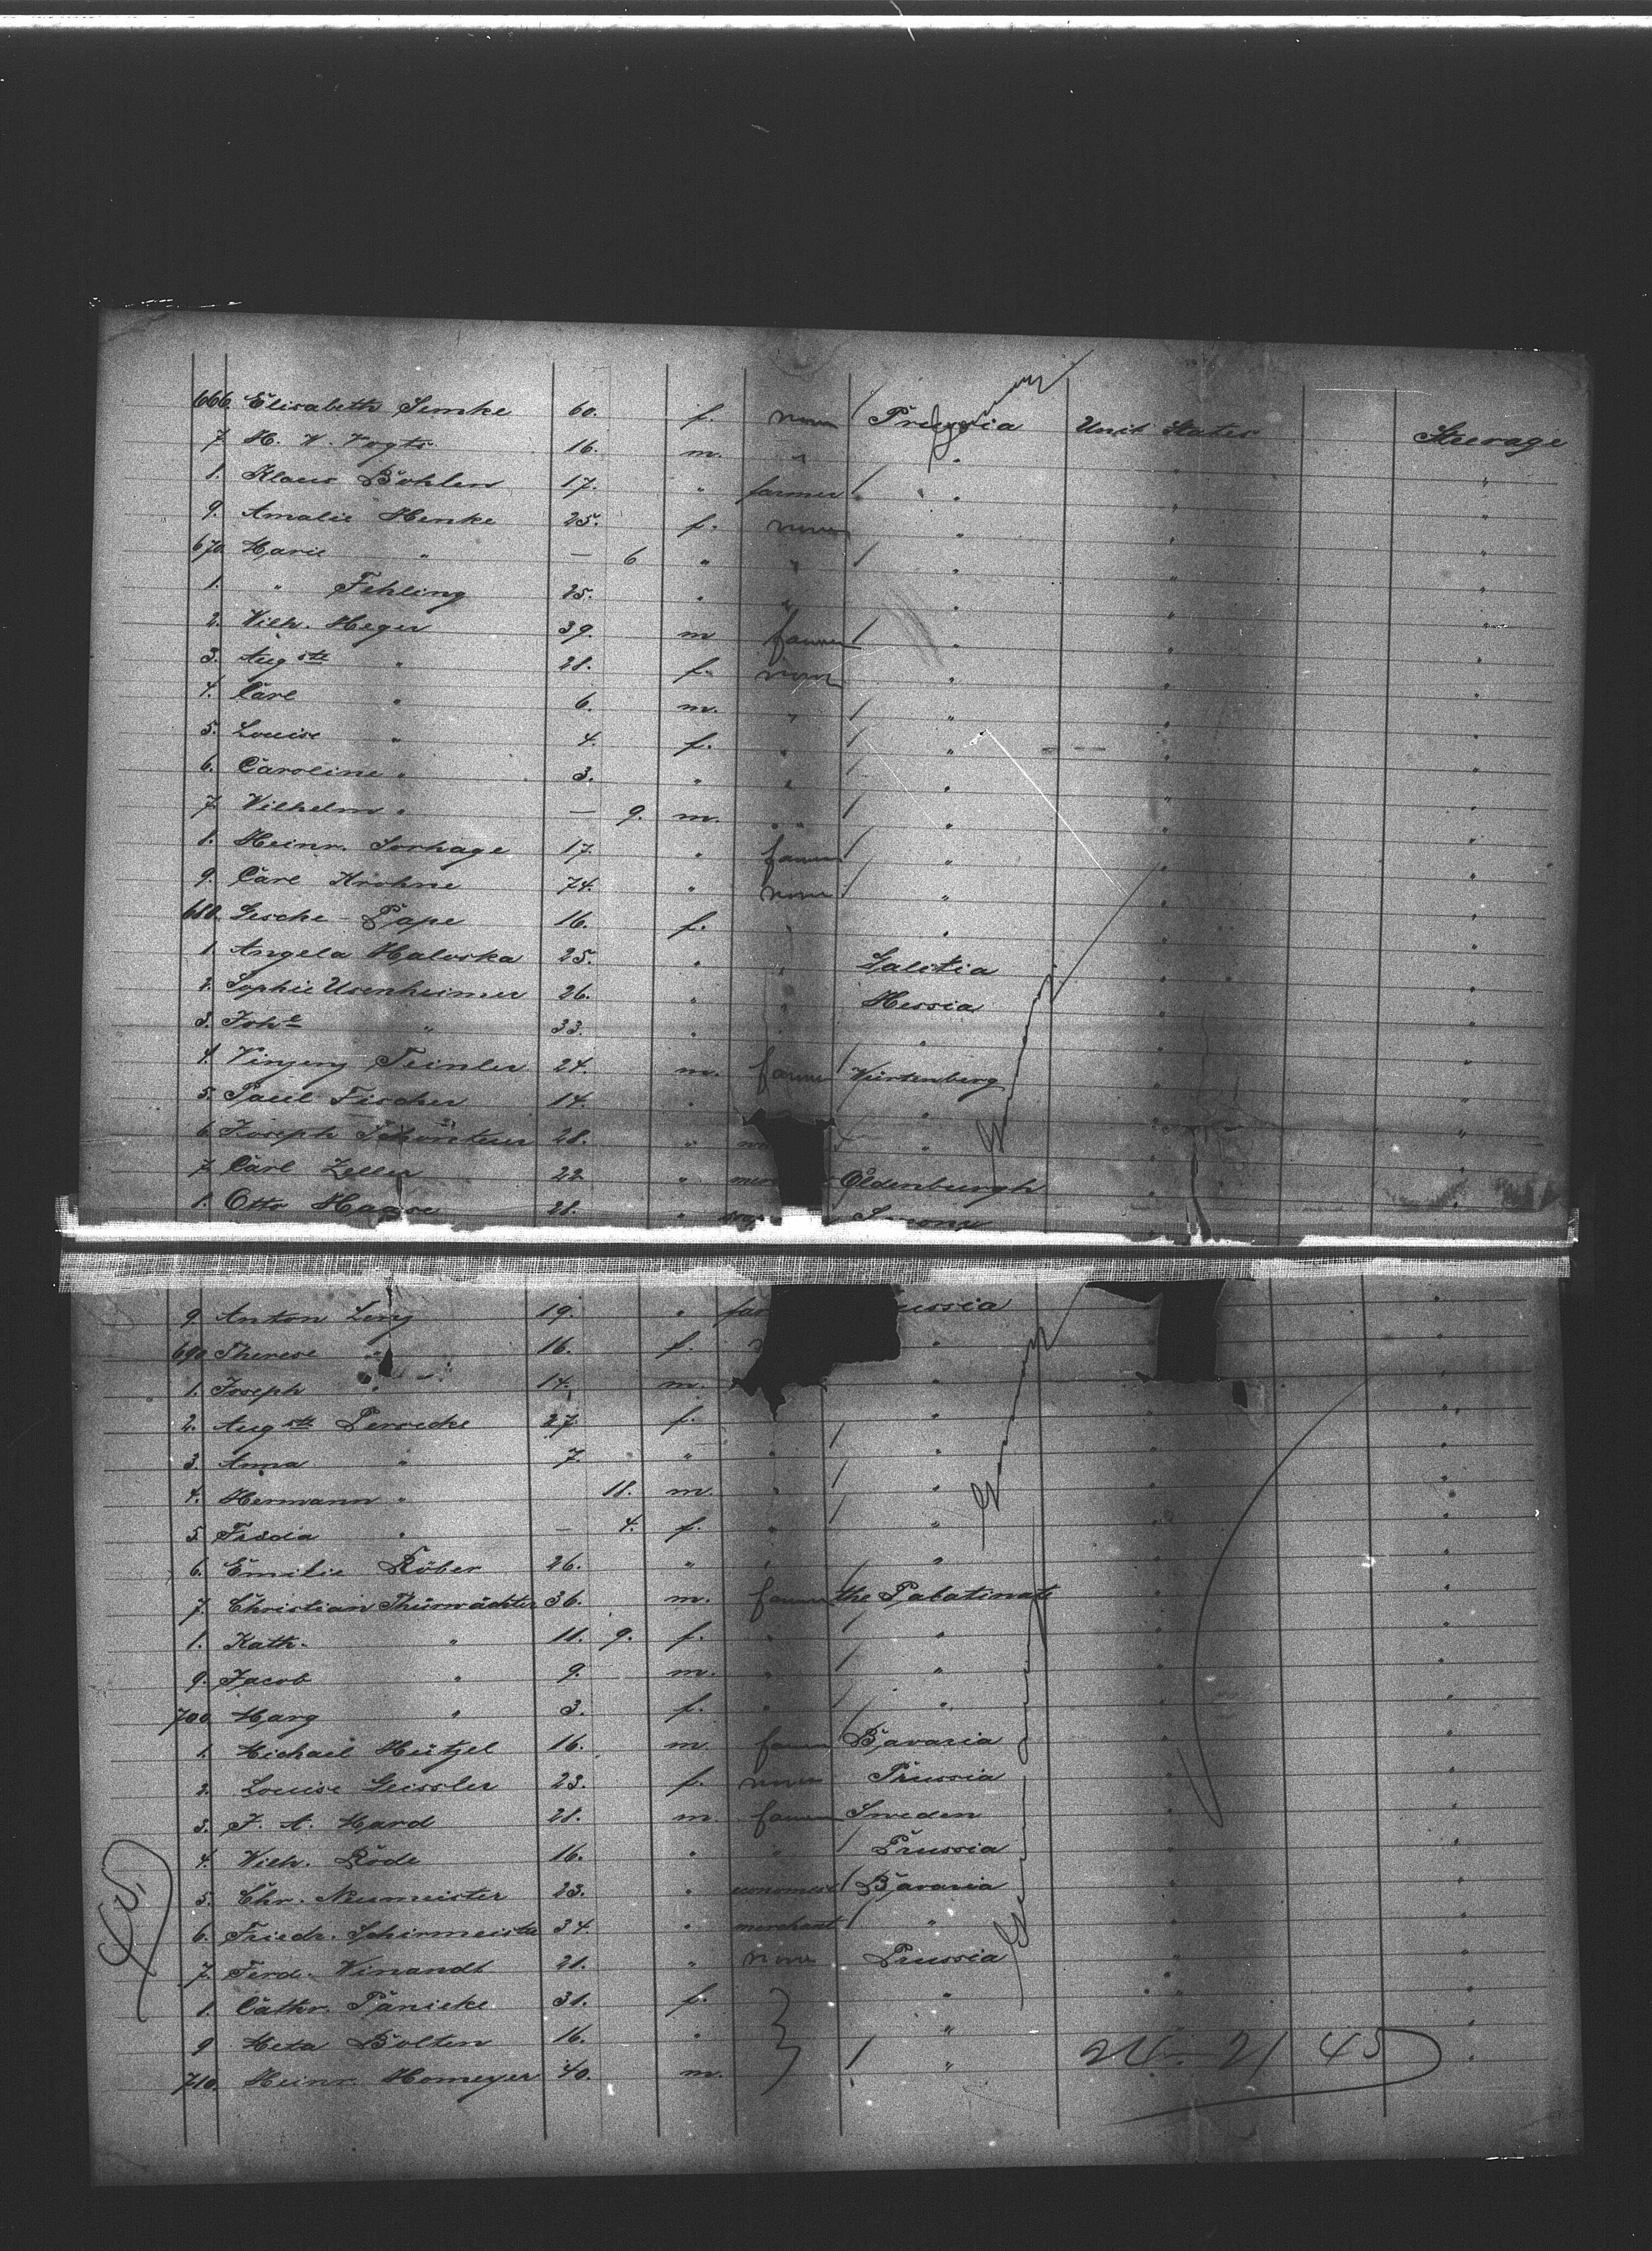 666. Elisabeth Semke 60. f. none / Prussia Germany Unit States Steerage
7. H. W. Vogts 16. m. " " " "
8. Klaus Böhlen 17. " farmer / " " "
9. Amalie Henke 25. f. none " " "
670. Marie " — 6 " " / " " "
1. " Fehling 25. " " " " "
2. Wilh. Heger 39. m farmer / " " "
3. Augste " 28. f. none " " "
4. Carl " 6. m. " / " " "
5. Louise " 4. f. " / " " "
6. Caroline " 3. " " / " " "
7. Wilhelm " — 9. m. " / " " "
8. Heinr. Sorhage 17. " farmer / " " "
9. Carl Krohne 74. " none / " " "
680. Gesche Pape 16. f. " " " "
1. Angela Haloska 25. " " Galitia " "
2. Sophie Usenheimer 26. " " Hessia " "
3. Johe " 33. " " " " "
4. Vinzenz Teinler 24. m. farmer / Würtenberg Germany " "
5. Paul Fischer 14. " " " "
6. Joseph 28. " " " "
7. Carl Zeller 22. " Oldenburgh " "
8. Otto Haase 28. " "
9. Anton Leny 19. " far ussia "
690. Therese " 16. f. " "
1. Joseph " 14. m. " "
2. Augste Persecke 27. f. / " " "
3. Anna " 7. " " / " " "
4. Hermann " 11. m. " / " " "
5. Frieda " — 4. f. " / " " "
6. Emilie Röber 26. " " / " " "
7. Christian Thürwächter 36. m. farmer the Palatinate " "
8. Kath. " 11. 9. f. " / " " "
9. Jacob " 9. m. " / " " "
700. Marg " 3. f. " / " " "
1. Michael Hützel 16. m. farmer Bavaria " "
2. Louise Geissler 23. f. none Prussia " "
3. J. A. Hard 28. m. farmer Sweden " "
4. Wilh. Röde 16. " " / Prussia " "
5. Chr. Neumeister 23. " economist / Bavaria " "
6. Friedr. Schirmeister 34. " merchant / " " "
7. Ferd. Winandt 21. " none Prussia " "
8. Cathr. Pänicke 31. f. " " "
9. Meta Bolten 16. " " "
710. Heinr. Homeyer 40. m. / " 24 - 21 45 "